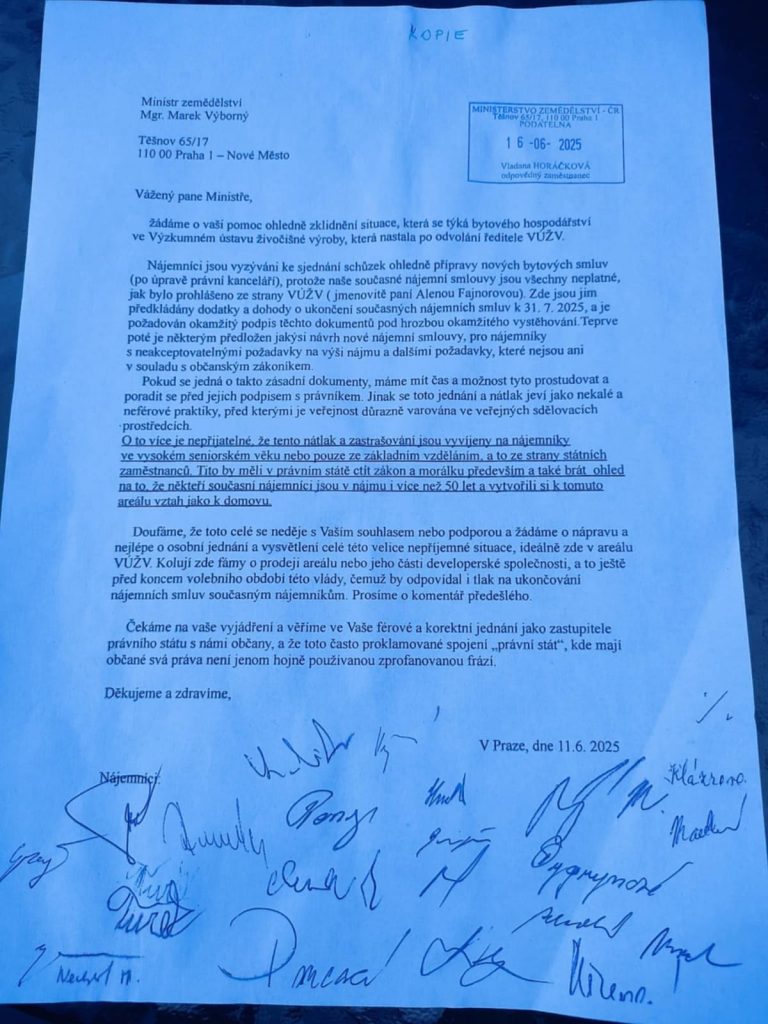 KOPIE
Ministr zemědělství
Mgr. Marek Výborný
Těšnov 65/17
110 00 Praha 1 – Nové Město
MINISTERSTVO ZEMĚDĚLSTVÍ - ČR
Těšnov 65/17, 110 00 Praha 1
PODATELNA
16 -06- 2025
Vladana HORÁČKOVÁ
odpovědný zaměstnanec
Vážený pane Ministře,
žádáme o vaši pomoc ohledně zklidnění situace, která se týká bytového hospodářství
ve Výzkumném ústavu živočišné výroby, která nastala po odvolání ředitele VÚŽV.
Nájemníci jsou vyzýváni ke sjednání schůzek ohledně přípravy nových bytových smluv
(po úpravě právní kanceláří), protože naše současné nájemní smlouvy jsou všechny neplatné,
jak bylo prohlášeno ze strany VÚŽV ( jmenovitě paní Alenou Fajnorovou). Zde jsou jim
předkládány dodatky a dohody o ukončení současných nájemních smluv k 31. 7. 2025, a je
požadován okamžitý podpis těchto dokumentů pod hrozbou okamžitého vystěhování. Teprve
poté je některým předložen jakýsi návrh nové nájemní smlouvy, pro nájemníky
s neakceptovatelnými požadavky na výši nájmu a dalšími požadavky, které nejsou ani
v souladu s občanským zákoníkem.
Pokud se jedná o takto zásadní dokumenty, máme mít čas a možnost tyto prostudovat a
poradit se před jejich podpisem s právníkem. Jinak se toto jednání a nátlak jeví jako nekalé a
neférové praktiky, před kterými je veřejnost důrazně varována ve veřejných sdělovacích
prostředcích.
O to více je nepřijatelné, že tento nátlak a zastrašování jsou vyvíjeny na nájemníky
ve vysokém seniorském věku nebo pouze ze základním vzděláním, a to ze strany státních
zaměstnanců. Tito by měli v právním státě ctít zákon a morálku především a také brát ohled
na to, že někteří současní nájemníci jsou v nájmu i více než 50 let a vytvořili si k tomuto
areálu vztah jako k domovu.
Doufáme, že toto celé se neděje s Vaším souhlasem nebo podporou a žádáme o nápravu a
nejlépe o osobní jednání a vysvětlení celé této velice nepříjemné situace, ideálně zde v areálu
VÚŽV. Kolují zde fámy o prodeji areálu nebo jeho části developerské společnosti, a to ještě
před koncem volebního období této vlády, čemuž by odpovídal i tlak na ukončování
nájemních smluv současným nájemníkům. Prosíme o komentář předešlého.
Čekáme na vaše vyjádření a věříme ve Vaše férové a korektní jednání jako zastupitele
právního státu s námi občany, a že toto často proklamované spojení „právní stát“, kde mají
občané svá práva není jenom hojně používanou zprofanovanou frází.
Děkujeme a zdravíme,
V Praze, dne 11.6. 2025
Nájemníci: